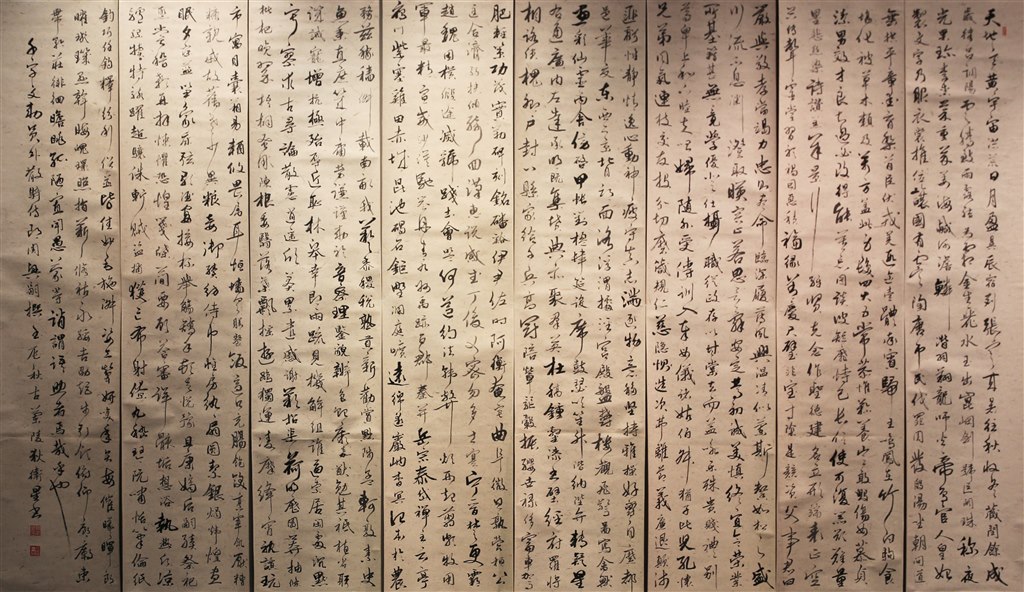 天地玄黄宇宙洪荒日月盈昃辰宿列張寒来暑往秋收冬藏閏餘成
歲律吕調陽雲騰致雨露結為霜金生麗水玉出崑岡劍號巨闕珠稱夜
光果珍李柰菜重芥薑海鹹河淡鱗潛羽翔龍師火帝鳥官人皇始
制文字乃服衣裳推位讓國有虞陶唐弔民伐罪周發殷湯坐朝問道
垂拱平章愛育黎首臣伏戎羌遐邇壹體率賓歸王鳴鳳在竹白駒食
場化被草木賴及萬方蓋此身髮四大五常恭惟鞠養豈敢毀傷女慕貞
潔男效才良知過必改得能莫忘罔談彼短靡恃己長信使可覆器欲難量
墨悲絲染詩讚羔羊景行維賢克念作聖德建名立形端表正空
谷傳聲虛堂習聽禍因惡積福緣善慶尺璧非寶寸陰是競資父事君曰
嚴與敬孝當竭力忠則盡命臨深履薄夙興温凊似蘭斯馨如松之盛
川流不息淵澄取暎容止若思言辭安定篤初誠美慎終宜令榮業
所基籍甚無竟學優登仕攝職從政存以甘棠去而益詠樂殊貴賤禮别
尊卑上和下睦夫唱婦隨外受傅訓入奉母儀諸姑伯叔猶子比兒孔懷
兄弟同氣連枝交友投分切磨箴規仁慈隱惻造次弗離節義廉退顛沛
匪虧性静情逸心動神疲守真志滿逐物意移堅持雅操好爵自縻都
邑華夏東西二京背邙面洛浮渭據涇宫殿盤鬱樓觀飛驚圖寫禽獸
畫彩仙靈丙舍傍啓甲帳對楹肆筵設席鼓瑟吹笙升階納陛弁轉疑星
右通廣内左達承明既集墳典亦聚群英杜稿鍾隸漆書壁經府羅將
相路俠槐卿户封八縣家給千兵高冠陪輦驅轂振纓世禄侈富車駕
肥輕策功茂實勒碑刻銘磻溪伊尹佐時阿衡奄宅曲阜微旦孰營桓公
匡合濟弱扶傾綺回漢惠説感武丁俊乂密勿多士寔寧晉楚更霸
趙魏困横假途滅虢踐土會盟何遵約法韓弊煩刑起翦頗牧用
軍最精宣威沙漠馳譽丹青九州禹跡百郡秦并岳宗泰岱禪主云亭
雁門紫塞雞田赤城昆池碣石鉅野洞庭曠遠綿邈巖岫杳冥治本於農
務兹稼穡俶載南畝我藝黍稷税熟貢新勸賞黜陟孟軻敦素史
魚秉直庶幾中庸勞謙謹敕聆音察理鑒貌辨色貽厥嘉猷勉其祗植省躬
譏誡寵增抗極殆辱近恥林皋幸即兩疏見機解組誰逼索居閒處沉默
寂寥求古尋論散慮逍遥欣奏累遣慼謝歡招渠荷的歷園莽抽條
枇杷晚翠梧桐蚤凋陳根委翳落葉飄颻遊鵾獨運凌摩絳霄耽讀翫
市寓目囊箱易輶攸畏屬耳垣墻具膳餐飯適口充腸飽飫烹宰飢厭糟
糠親戚故舊老少異糧妾御績紡侍巾帷房紈扇圓潔銀燭煒煌晝
眠夕寐藍筍象床弦歌酒宴接杯舉觴矯手頓足悦豫且康嫡後嗣續祭祀
烝嘗稽顙再拜悚懼恐惶牋牒簡要顧答審詳骸垢想浴執熱願凉
驢騾犢特駭躍超驤誅斬賊盜捕獲叛亡布射僚丸嵇琴阮嘯恬筆倫紙
鈞巧任釣釋紛利俗並皆佳妙毛施淑姿工顰妍笑年矢每催曦暉朗
曜璇璣懸斡晦魄環照指薪修祜永綏吉劭矩步引領俯仰廊廟束
帶矜莊徘徊瞻眺孤陋寡聞愚蒙等誚謂語助者焉哉乎也
千字文勅員外散騎侍郎周興嗣撰壬辰秋古蘭陵